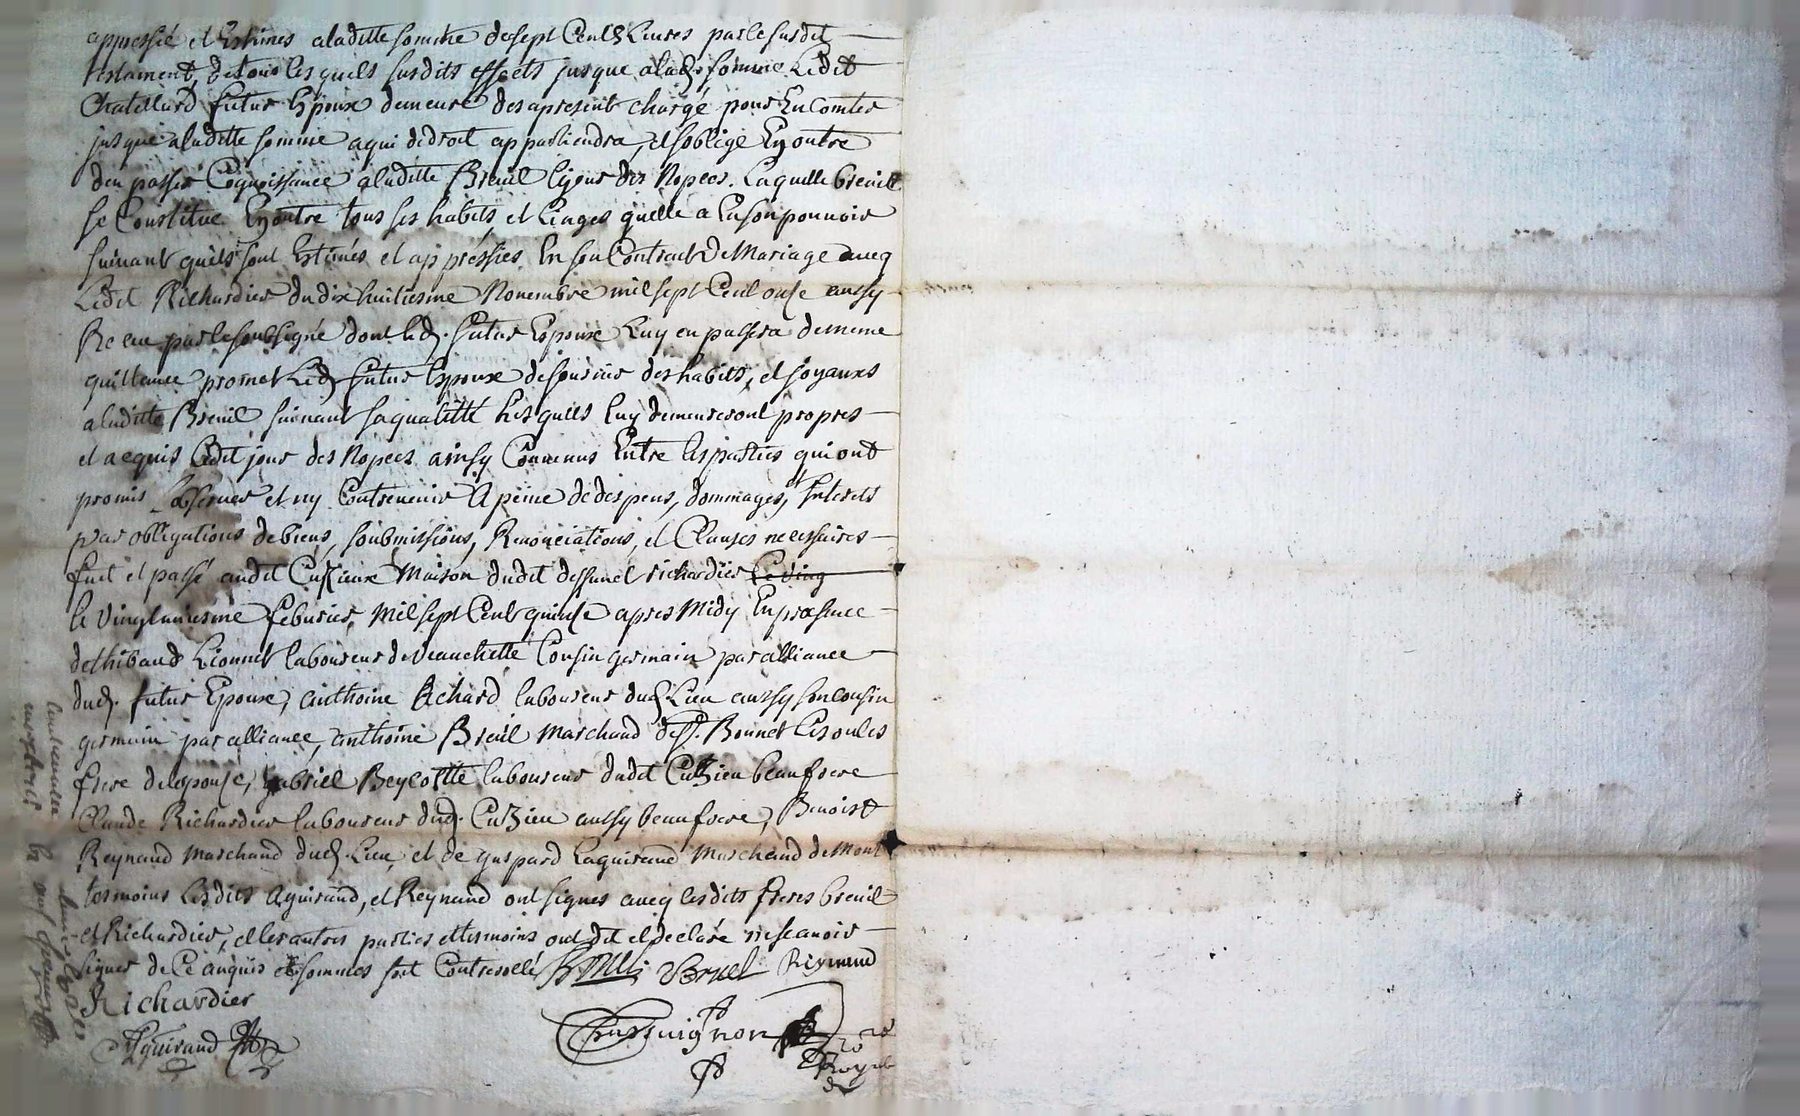 appressié et Estimés aladitte somme desept Cents Livres parlesusdit
testament, detous lesquels susdits effects jusque alad. somme Ledit
Chatellard futur Epoux demeure desapresent chargé pour En Comter
jusque aladitte somme aqui dedroit appartiendra, et soblige Enoutre
den passer Cognoissance aladitte Breuil lejour des Nopces. Laquelle breuil
se Constitue Enoutre tous ses habits, et Linges quelle a Ensonpouvoir
suivant quils sont Estimés et appressies En son Contract de Mariage avecq
Ledit Richardier dudix huitiesme Novembre mil sept Cent onse aussy
Receu parlesoubsigné dont led. futur Espoux Luy en passera demême
quittance promet Led. futur Espoux defournir des habits, et Joyaux
aladitte Breuil suivant saqualitté Lesquels luy demeureront propres
et acquis Ledit jour des Nopces ainsy Convenus Entre lesparties quiont
promis observer et ny Contrevenir A peine dedespens, dommages, et Interets
par obligations debiens, soubmissions, Renonciations, et Clauses necessaires
fait et passé audit Cuzieux Maison dudit deffunct richardier
le Vingtuniesme febvrier, Mil sept Cent quinse apres Midy En presence
dethibaud Lionnet laboureur deveauchette Cousin germain par alliance
dud. futur Epoux, anthoine Richard laboureur dud. Lieu aussy son cousin
germain par alliance, anthoine Breuil Marchand de St. Bonnet Lesoules
frere delepouse, gabriel Beycotte laboureur dudit Cuzieu beaufrere
Claude Richardier laboureur dud. Cuzieu aussy beaufrere, Benoist
Reynaud Marchand dud. Lieu, et de gaspard Laguiraud Marchand de Mont
tesmoins Lesdits Aguiraud, et Reynaud ont signes avecq lesdits freres breuil
et Richardier, et les autres parties et tesmoins ont dit et declaré nesçavoir
signer de Ce anquis et sommes soit Controrolé Breuil Reynaud
Richardier
Aguiraud